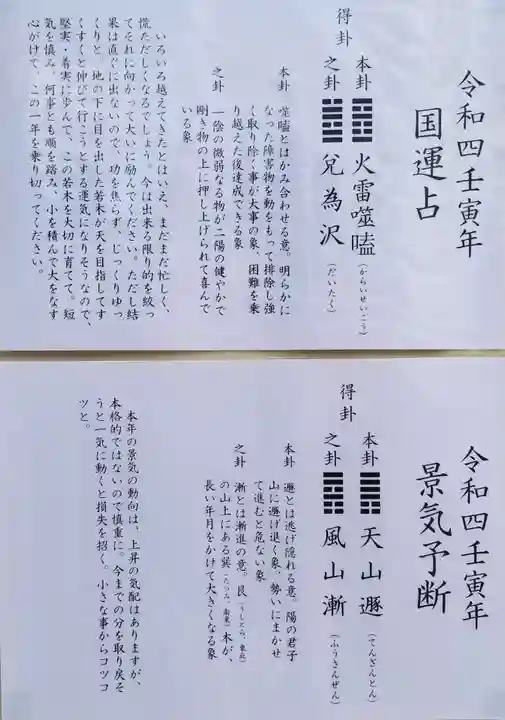 令和四壬寅年
国運占
得卦
本卦 火雷噬嗑（からいぜいごう）
之卦 兌為沢（だいたく）
本卦
噬嗑とはかみ合わせる意。明らかに
なった障害物を動をもって排除し強
く取り除く事が大事の象、困難を乗
り越えた後達成できる象
之卦
一陰の微弱なる物が二陽の健やかで
剛き物の上に押し上げられて喜んで
いる象
いろいろ越えてきたとはいえ、まだまだ忙しく、
慌ただしくなるでしょう。今は出来る限り的を絞っ
てそれに向かって大いに励んでください。ただし結
果は直ぐに出ないので、功を焦らず、じっくりゆっ
くりと。地の下に目を出した若木が天を目指してす
くすくと伸びて行こうとする運気になりそうなので、
堅実・着実に歩んで、この若木を大切に育てて。短
気を慎み、何事とも順を踏み、小を積んで大をなす
心がけて、この一年を乗り切ってください。
令和四壬寅年
景気予断
得卦
本卦 天山遯（てんざんとん）
之卦 風山漸（ふうさんぜん）
本卦
遯とは逃げ隠れる意。陽の君子
山に遯げ退く象、勢いにまかせ
て進むと危ない象
之卦
漸とは漸進の意。艮（うしとら、東北）
の山上にある巽（たつみ、南東）木が、
長い年月をかけて大きくなる象
本年の景気の動向は、上昇の気配はありますが、
本格的ではないので慎重に。今までの分を取り戻そ
うと一気に動くと損失を招く。小さな事からコツコ
ツと。